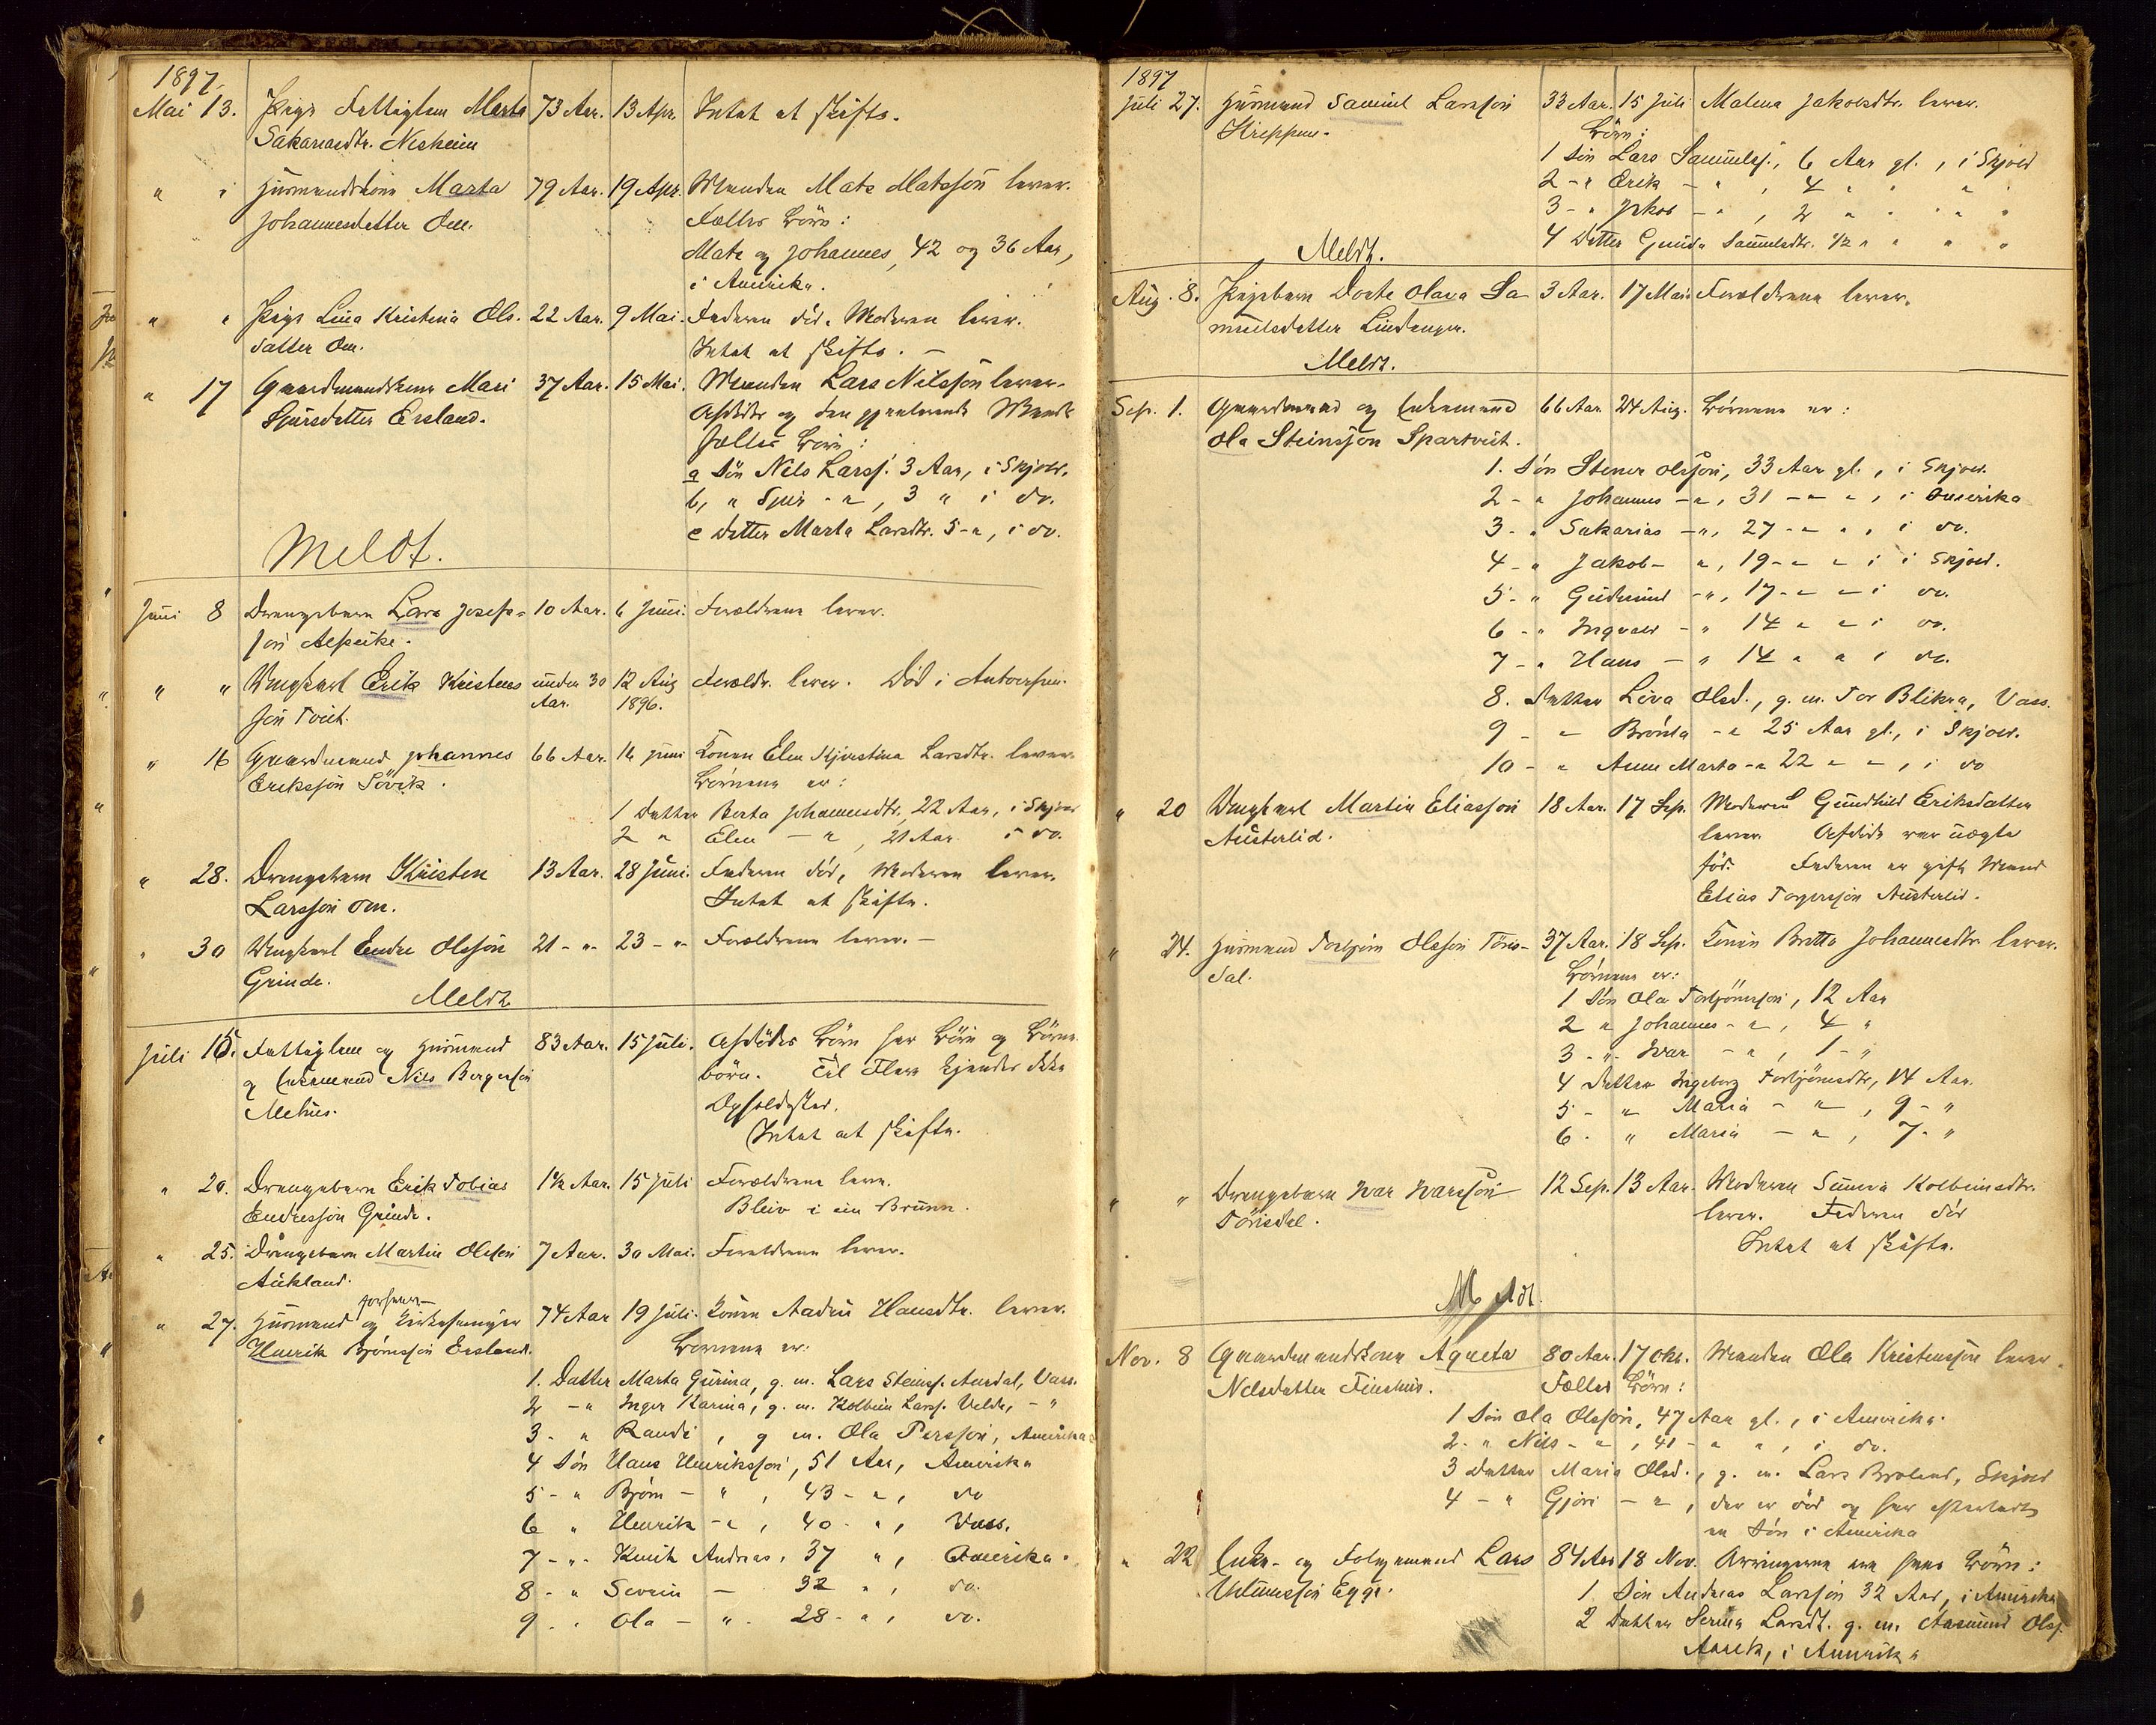 1897.
Mai 13. Pige Fattiglem Marta 73 Aar. 13 Apr. Intet at skifte.
Sakariasdtr. Nesheim
" " Husmandskone Marta 79 Aar. 19 Apr. Manden Mats Matsson lever.
Johannesdatter Om. Fælles Børn:
Mats og Johannes, 42 og 36 Aar,
i Amerika.
" " Pige Lina Kristina Ols- 22 Aar. 9 Mai. Faderen død. Moderen lever.
datter Om. Intet at skifte. –
" 17 Gaardmandskone Mari 37 Aar. 15 Mai. Manden Lars Nilsson lever.
Sjursdatter Ersland. Afdøde og den gjenlevende Mands
fælles Børn:
a Søn Nils Larss. 3 Aar, i Skjold.
b, " Sjur - " , 3 " i do.
c Datter Marta Larsdtr. 5 - ", i do.
Meldt.
Juni 8 Drengebarn Lars Josefs- 10 Aar. 6 Juni. Forældrene lever.
son Alsvike.
" " Ungkarl Erik Kristens under 30 12 Aug Forældr. lever. Død i Antverpen.
son Tveit. Aar. 1896.
" 16 Gaardmand Johannes 66 Aar. 16 Juni Konen Elen Kjerstina Larsdtr. lever.
Eriksson Søvik. Børnene er:
1 Datter Berta Johannesdtr., 22 Aar, i Skjold
2 " Elen - " , 21 Aar i do.
" 28. Drengebarn Kristen 13 Aar. 28 Juni. Faderen død, Moderen lever.
Larsson Om. Intet at skifte.
" 30 Ungkarl Endre Olsson 21 - " - 23 - " - Forældrene lever. –
Grinde.
Meldt
Juli 15. Fattiglem og Husmand 83 Aar. 15 Juli. Afdødes Børn har Børn og Børne-
og Enkemand Nils Bergesson børn. Til Flere kjendes ikke
Mehus. Opholdssted.
Intet at skifte.
" 20. Drengebarn Erik Tobias 1½ Aar. 15 Juli Forældrene lever.
Endresson Grinde. Bleiv i ein Brunn.
" 25. Drengebarn Martin Olsson 7 Aar. 30 Mai. Forældrene lever.
Aukland.
forhenv.
" 27. Husmand og Kirkesanger 74 Aar 19 Juli. Konen Hansdtr. lever.
Henrik Bjørnsson Ersland. Børnene er:
1. Datter Marta Gurina, g. m. Lars Steinss. Aurdal, Vass.
2 - " Inger Karina, g. m. Kolbein Larss. Velde, - "
3 - " Randi , g m. Ola Persson, Amerika
4 Søn Hans Henriksson, 51 Aar, Amerika
5 - " Bjørn - " , 43 - ", do
6 " Henrik - " , 40 - ", Vass.
7 - " - Knut Andreas, 37 ", Amerika.
8 - " Severin — 32 ", do.
9 - " Ola - " - 28 - ", do.
1897
Juli 27. Husmand Samuel Larsson 33 Aar. 15 Juli Malena Jakobsdtr. lever.
Kreppene. Børn:
1 Søn Lars Samuelss., 6 Aar gl., i Skjold
2 - " Erik - " , 4 " " "
3 - " Jakob - " , 2 " " " "
4 Datter Gunda Samuelsdtr. ½ " " " "
Meldt.
Aug. 8. Pigebarn Dorte Olava Sa- 3 Aar. 17 Mai Forældrene lever.
muelsdatter Lindanger.
Meldt.
Sep. 1. Gaardmand og Enkemand 66 Aar. 24 Aug. Børnene er:
Ola Steinsson Spartveit.
1. Søn Stener Olsson, 33 Aar gl., i Skjold.
2 - " Johannes - ", 31 - " ", i Amerika
3 - " Sakarias - ", 27 - " ", i do.
4 - " Jakob - ", 19 - " " i Skjold.
5 - " Gudmund - ", 17 - " " i do.
6 - " Ingvald - " 14 " " i do.
7 - " Hans - " 14 " " i do.
8. Datter Liva Olsd., g. m. Tor Blikra, Vass.
9 - " Bronla - " 25 Aar gl., i Skjold.
10 - " Anne Marta - " 22 " ", i do
" 20 Ungkarl Martin Eliasson 18 Aar. 17 Sep. Moderen Gundhild Eriksdatter
Austerlid. lever. Afdøde var uægte
fød. Faderen er gift Mand
Elias Torgersson Austerlid.
" 24. Husmand Torbjørn Olsson Tøris- 37 Aar. 18 Sep. Konen Britta Johannesdtr. lever.
dal. Børnene er:
1 Søn Ola Torbjørnsson, 12 Aar
2 " Johannes - " , 4 "
3 - " - Ivar - " , 1 - "
4 Datter Ingeborg Torbjørnsdtr, 14 Aar.
5 - " Maria - " , 9 - "
6 - " Maria - " , 7 - "
" " Drengebarn Ivar Ivarsson 12 Sep. 13 Aar. Moderen Suneva Kolbeinsdtr.
Tørisdal. lever. Faderen død
Intet at skifte.
Meldt.
Nov. 8 Gaardmandskone Agneta 80 Aar. 17 Okt. Manden Ola Kristensson lever.
Nelsdatter Finshus. Fælles Børn:
1 Søn Ola Olsson, 47 Aar gl., i Amerika.
2 - " Nils - " , 41 - " ", i do.
3 Datter Maria Olsd., g. m. Lars Broland, Skjold
4 - " Gjøri - " , der er død og har efterladt
en Søn i Amerika
" 22 Enke- og Folgemand Lars 84 Aar 18 Nov. Arvingerne ere hans Børn:
Egge. 1. Søn Andreas Larsson 32 Aar, i Amerika
2 Datter Serina Larsdt. g. m. Aasmund Olss.
Aarek, i Amerika